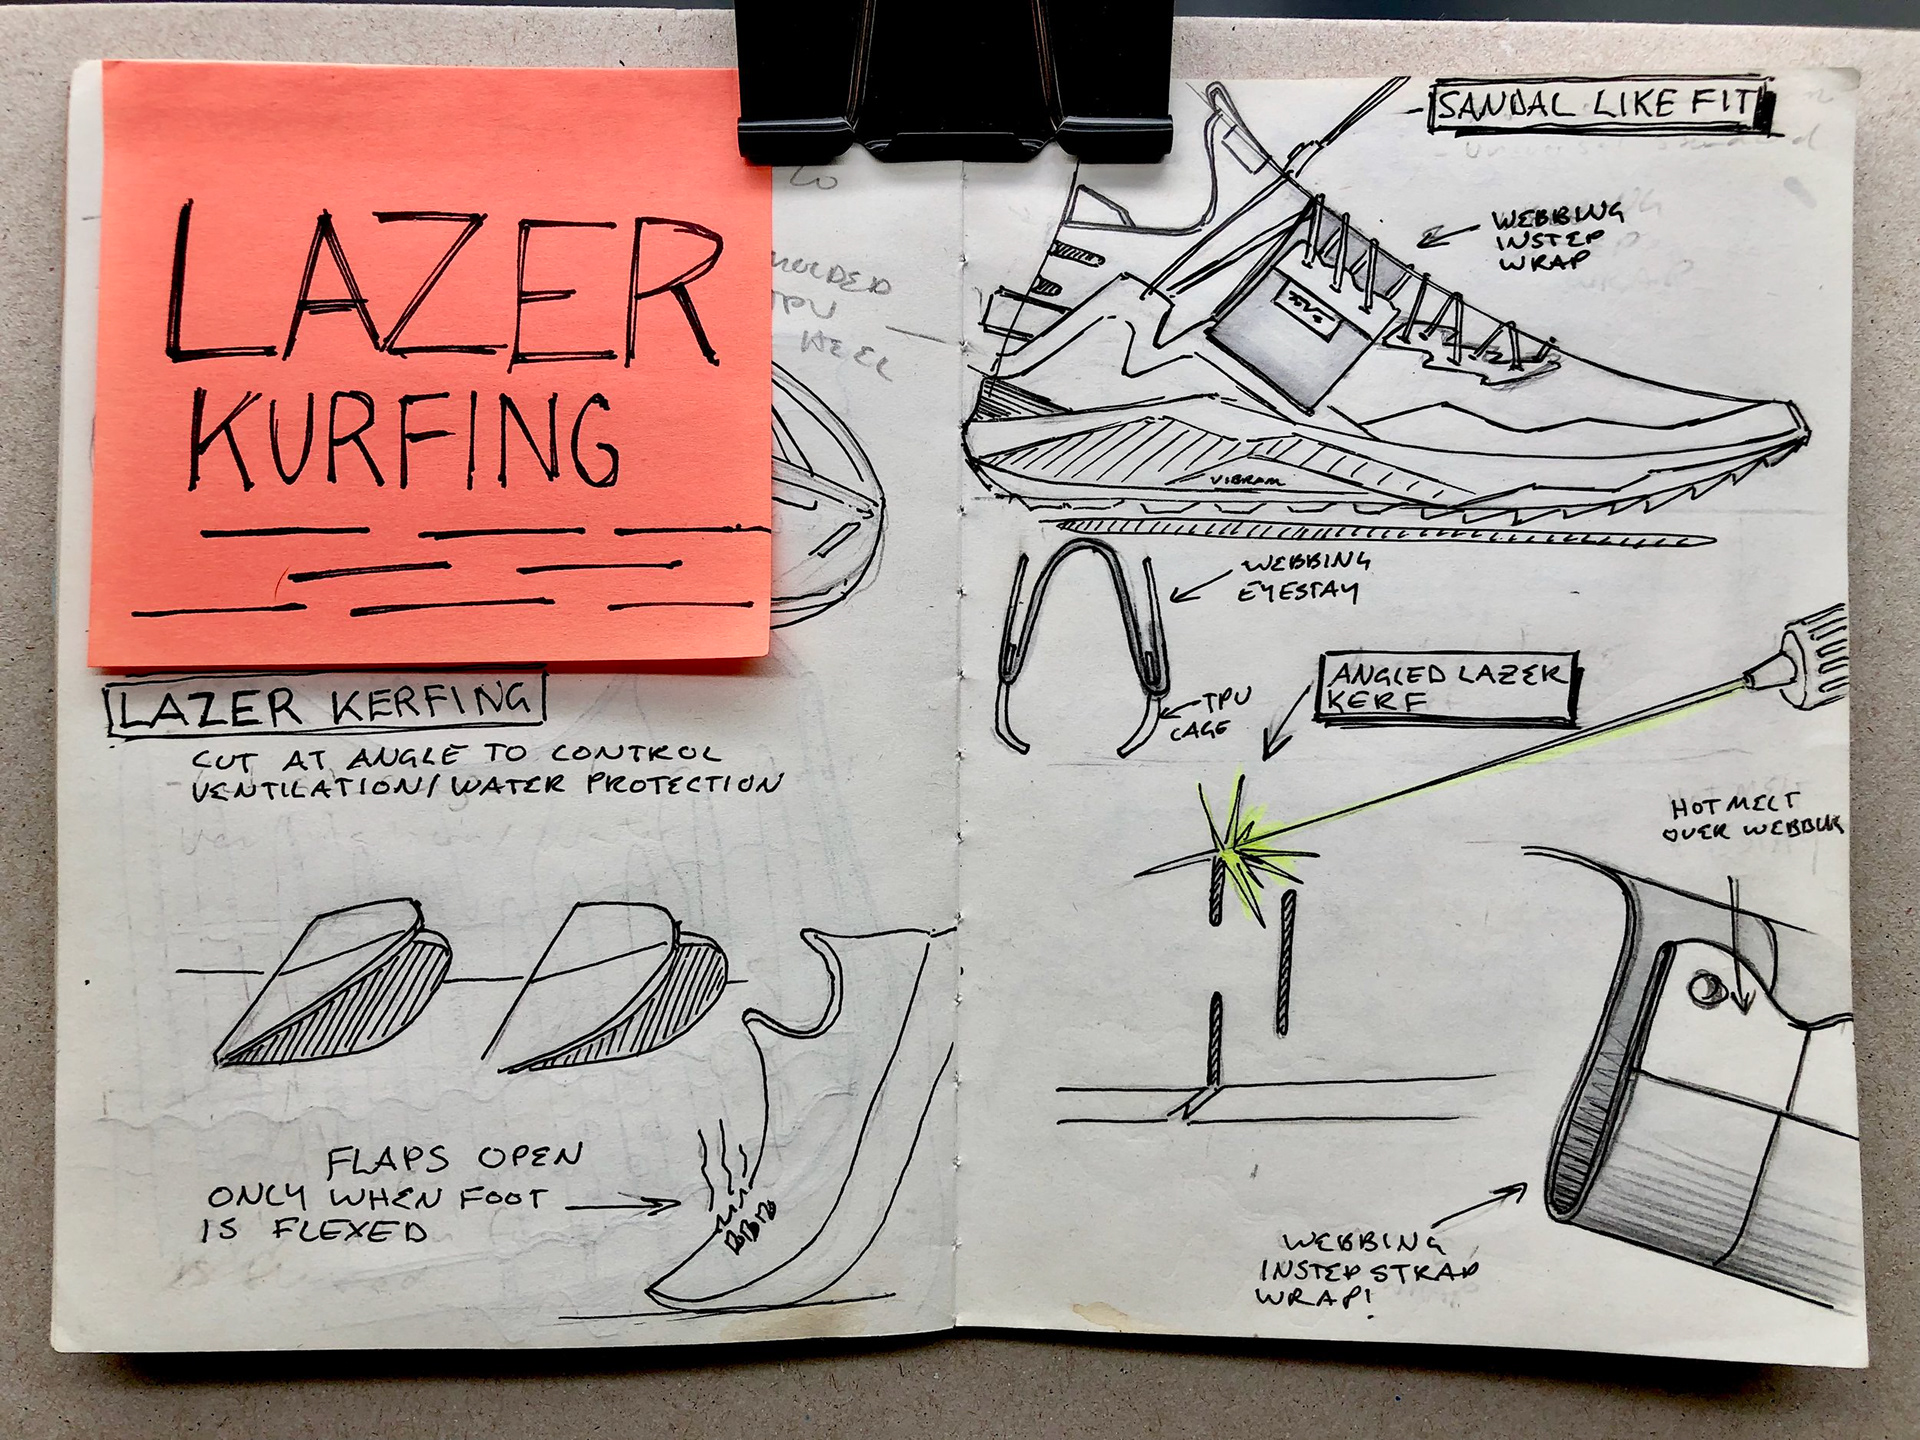 LAZER
KURFING
MOLDED
TPU
HEEL
LAZER KERFING
CUT AT ANGLE TO CONTROL
VENTILATION/WATER PROTECTION
FLAPS OPEN
ONLY WHEN FOOT
IS FLEXED
SANDAL LIKE FIT
WEBBING
INSTEP
WRAP
TEVA
VIBRAM
WEBBING
EYESTAY
TPU
CAGE
ANGLED LAZER
KERF
HOT MELT
OVER WEBBING
WEBBING
INSTEP STRAP
WRAP!